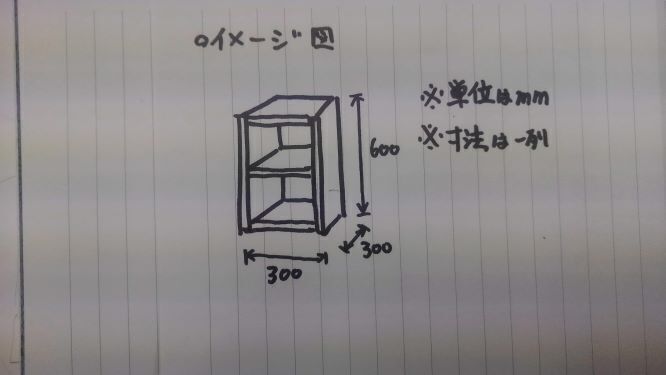 ○イメージ図
※単位はmm
※寸法は一列
600
300
300